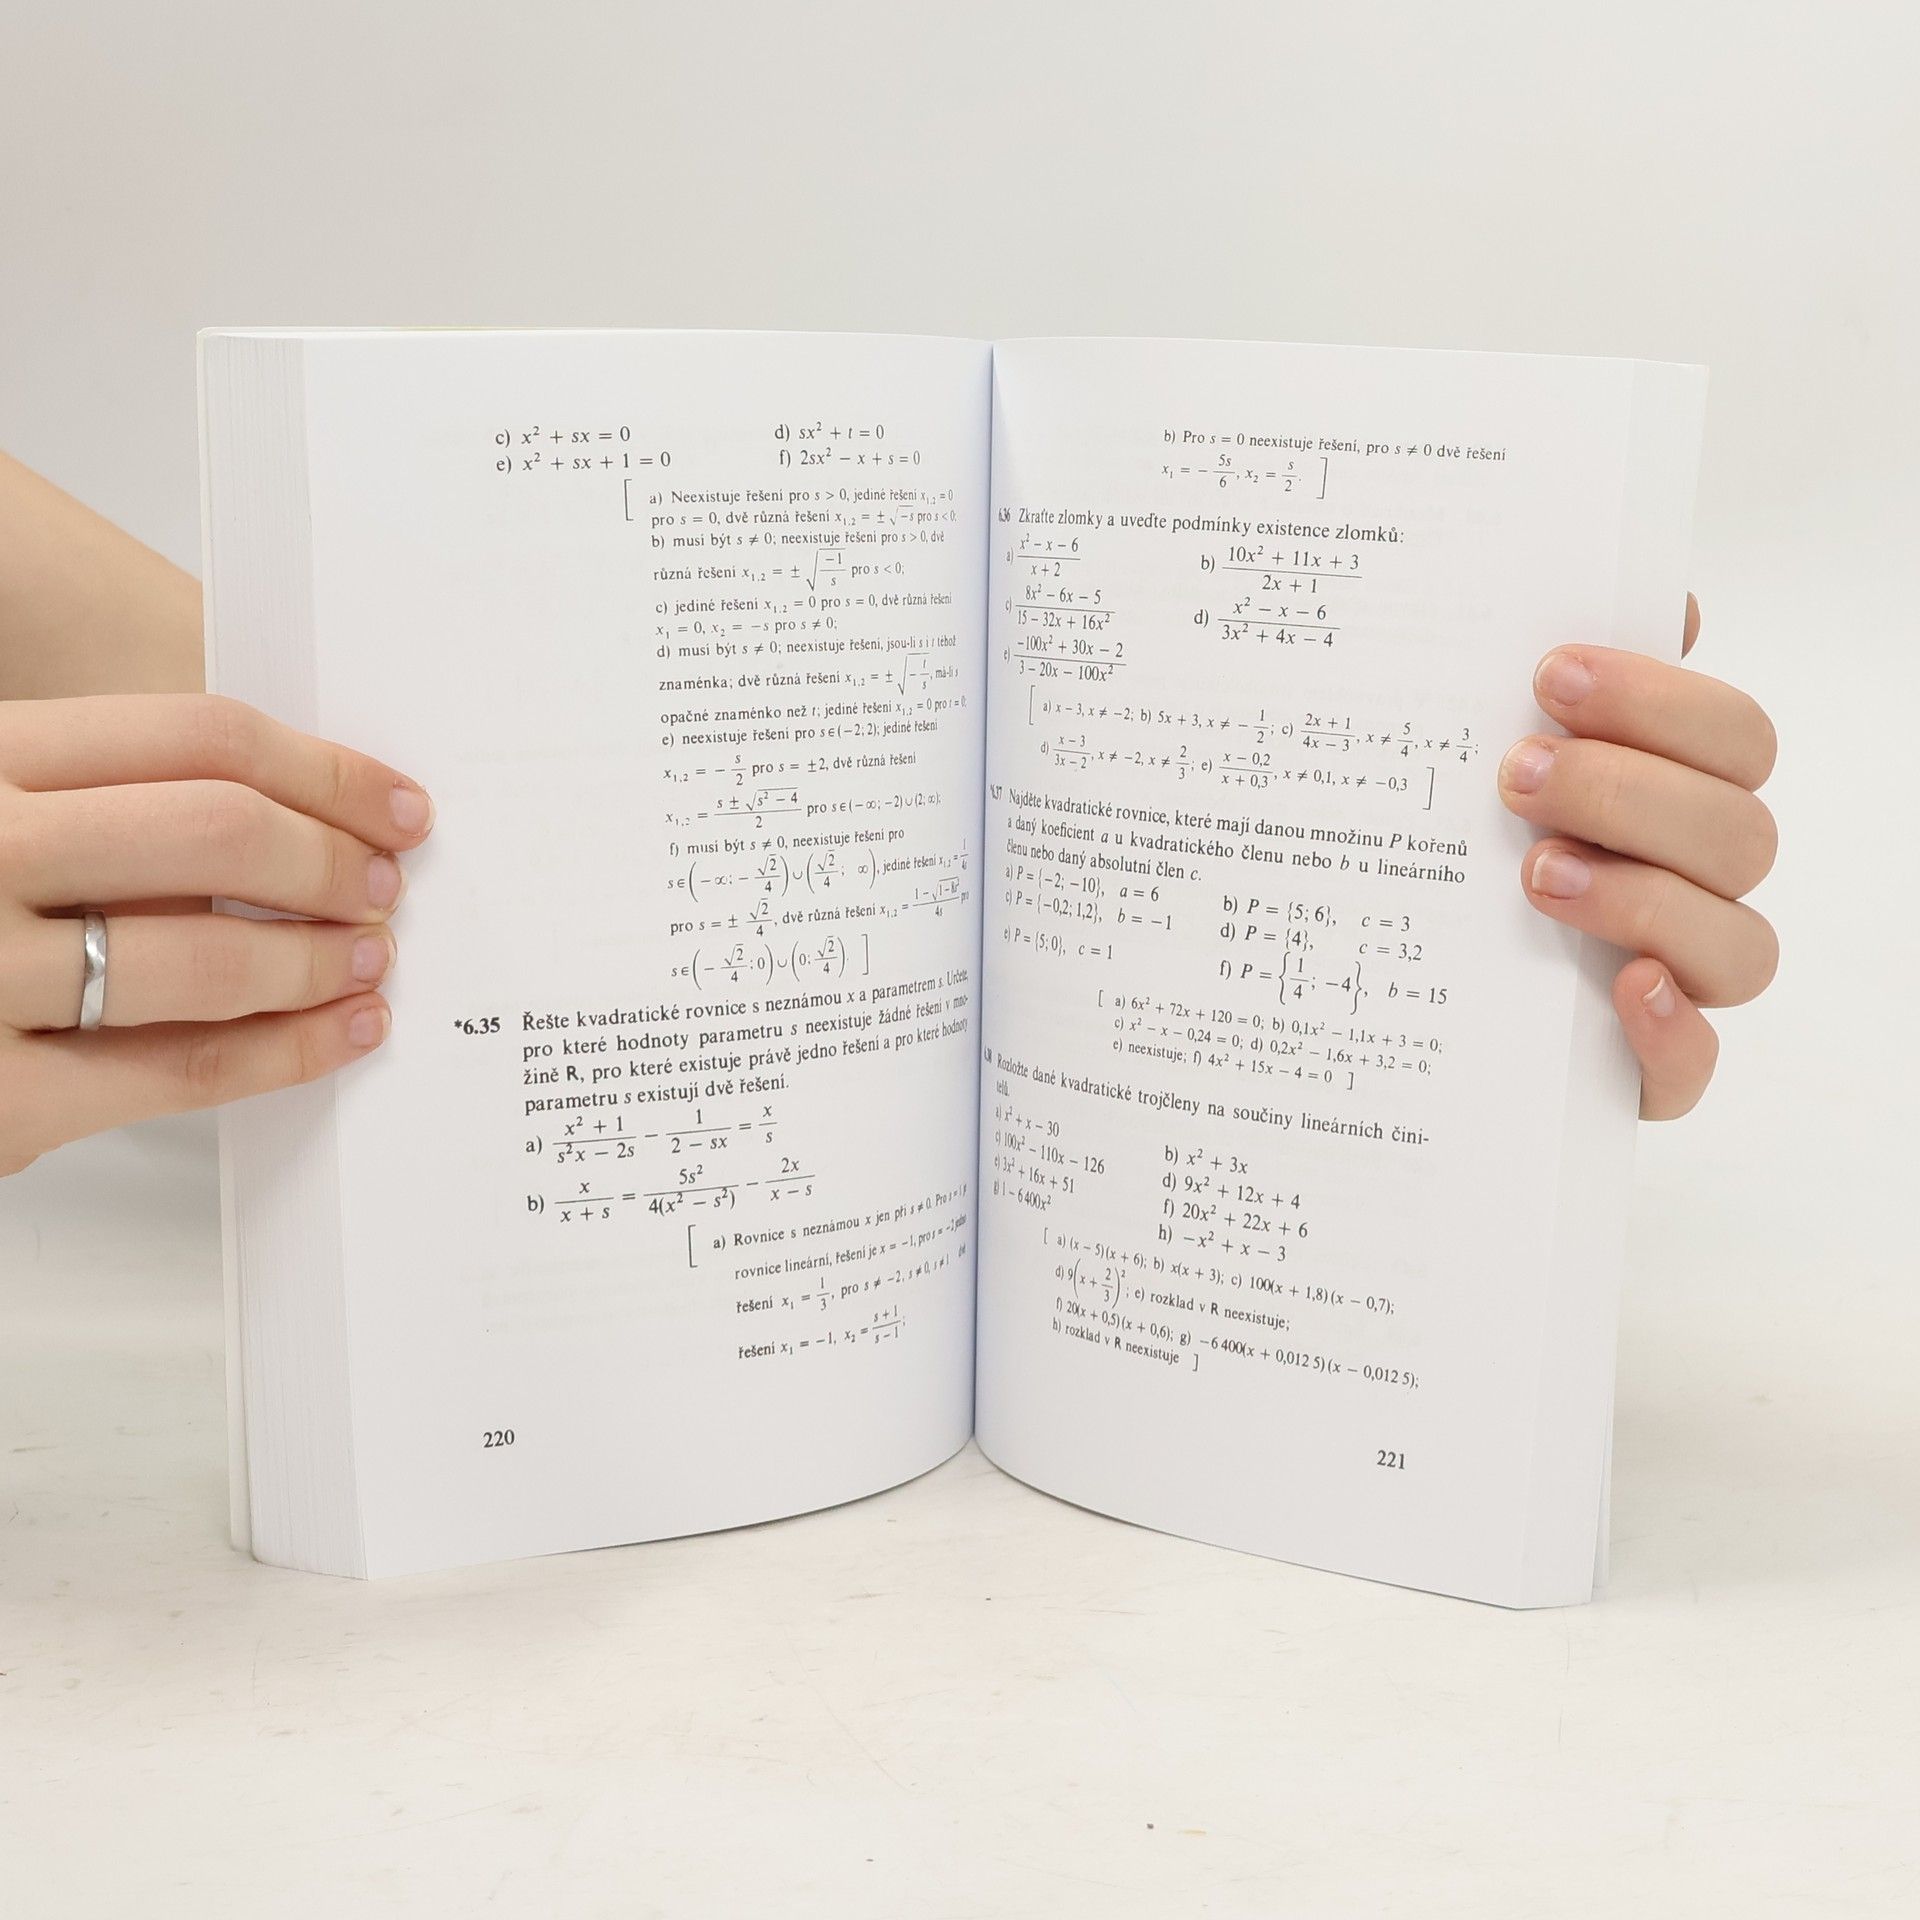 c) x² + sx = 0 d) sx² + t = 0
e) x² + sx + 1 = 0 f) 2sx² − x + s = 0
[ a) Neexistuje řešení pro s > 0, jediné řešení x₁,₂ = 0
pro s = 0, dvě různá řešení x₁,₂ = ± √−s pro s < 0;
b) musí být s ≠ 0; neexistuje řešení pro s > 0, dvě
různá řešení x₁,₂ = ± √(−1/s) pro s < 0;
c) jediné řešení x₁,₂ = 0 pro s = 0, dvě různá řešení
x₁ = 0, x₂ = −s pro s ≠ 0;
d) musí být s ≠ 0; neexistuje řešení, jsou-li s i t téhož
znaménka; dvě různá řešení x₁,₂ = ± √(−t/s), má-li s
opačné znaménko než t; jediné řešení x₁,₂ = 0 pro t = 0;
e) neexistuje řešení pro s∈(−2; 2); jediné řešení
x₁,₂ = −s/2 pro s = ±2, dvě různá řešení
x₁,₂ = (s ± √(s² − 4))/2 pro s∈(−∞; −2)∪(2; ∞);
f) musí být s ≠ 0, neexistuje řešení pro
s∈(−∞; −√2/4)∪(√2/4; ∞), jediné řešení x₁,₂ = 1/4s
pro s = ± √2/4, dvě různá řešení x₁,₂ = (1 − √(1 − 8s²))/4s pro
s∈(−√2/4; 0)∪(0; √2/4). ]
*6.35 Řešte kvadratické rovnice s neznámou x a parametrem s. Určete,
pro které hodnoty parametru s neexistuje žádné řešení v mno-
žině R, pro které existuje právě jedno řešení a pro které hodnoty
parametru s existují dvě řešení.
a) (x² + 1)/(s²x − 2s) − 1/(2 − sx) = x/s
b) x/(x + s) = 5s²/(4(x² − s²)) − 2x/(x − s)
[ a) Rovnice s neznámou x jen při s ≠ 0. Pro s = 1 je
rovnice lineární, řešení je x = −1, pro s = −2 jedno
řešení x₁ = 1/3, pro s ≠ −2, s ≠ 0, s ≠ 1 dvě
řešení x₁ = −1, x₂ = (s + 1)/(s − 1);
220
b) Pro s = 0 neexistuje řešení, pro s ≠ 0 dvě řešení
x₁ = −5s/6, x₂ = s/2. ]
6.36 Zkraťte zlomky a uveďte podmínky existence zlomků:
a) (x² − x − 6)/(x + 2) b) (10x² + 11x + 3)/(2x + 1)
c) (8x² − 6x − 5)/(15 − 32x + 16x²) d) (x² − x − 6)/(3x² + 4x − 4)
e) (−100x² + 30x − 2)/(3 − 20x − 100x²)
[ a) x − 3, x ≠ −2; b) 5x + 3, x ≠ −1/2; c) (2x + 1)/(4x − 3), x ≠ 5/4, x ≠ 3/4;
d) (x − 3)/(3x − 2), x ≠ −2, x ≠ 2/3; e) (x − 0,2)/(x + 0,3), x ≠ 0,1, x ≠ −0,3 ]
*6.37 Najděte kvadratické rovnice, které mají danou množinu P kořenů
a daný koeficient a u kvadratického členu nebo b u lineárního
členu nebo daný absolutní člen c.
a) P = {−2; −10}, a = 6 b) P = {5; 6}, c = 3
c) P = {−0,2; 1,2}, b = −1 d) P = {4}, c = 3,2
e) P = {5; 0}, c = 1 f) P = {1/4; −4}, b = 15
[ a) 6x² + 72x + 120 = 0; b) 0,1x² − 1,1x + 3 = 0;
c) x² − x − 0,24 = 0; d) 0,2x² − 1,6x + 3,2 = 0;
e) neexistuje; f) 4x² + 15x − 4 = 0 ]
Rozložte dané kvadratické trojčleny na součiny lineárních čini-
telů.
a) x² + x − 30 b) x² + 3x
c) 100x² − 110x − 126 d) 9x² + 12x + 4
e) 3x² + 16x + 51 f) 20x² + 22x + 6
g) 1 − 6 400x² h) −x² + x − 3
[ a) (x − 5)(x + 6); b) x(x + 3); c) 100(x + 1,8)(x − 0,7);
d) 9(x + 2/3)²; e) rozklad v R neexistuje;
f) 20(x + 0,5)(x + 0,6); g) −6 400(x + 0,012 5)(x − 0,012 5);
h) rozklad v R neexistuje ]
221